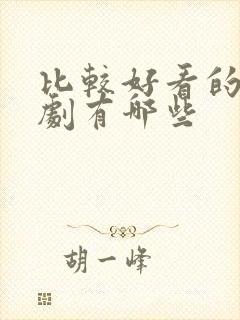 比較好看的
劇有哪些
胡一峰